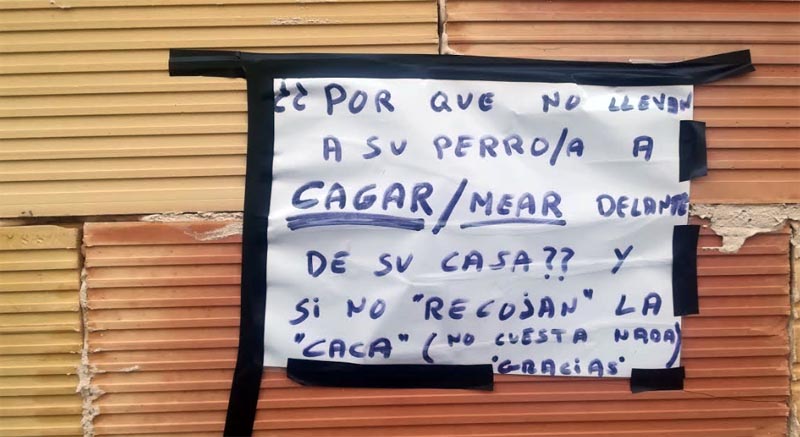 ¿¿POR QUE NO LLEVAN
A SU PERRO/A A
CAGAR/MEAR DELANTE
DE SU CASA?? Y
Si NO "RECOJAN" LA
"CACA" (NO CUESTA NADA)
"GRACiAS"